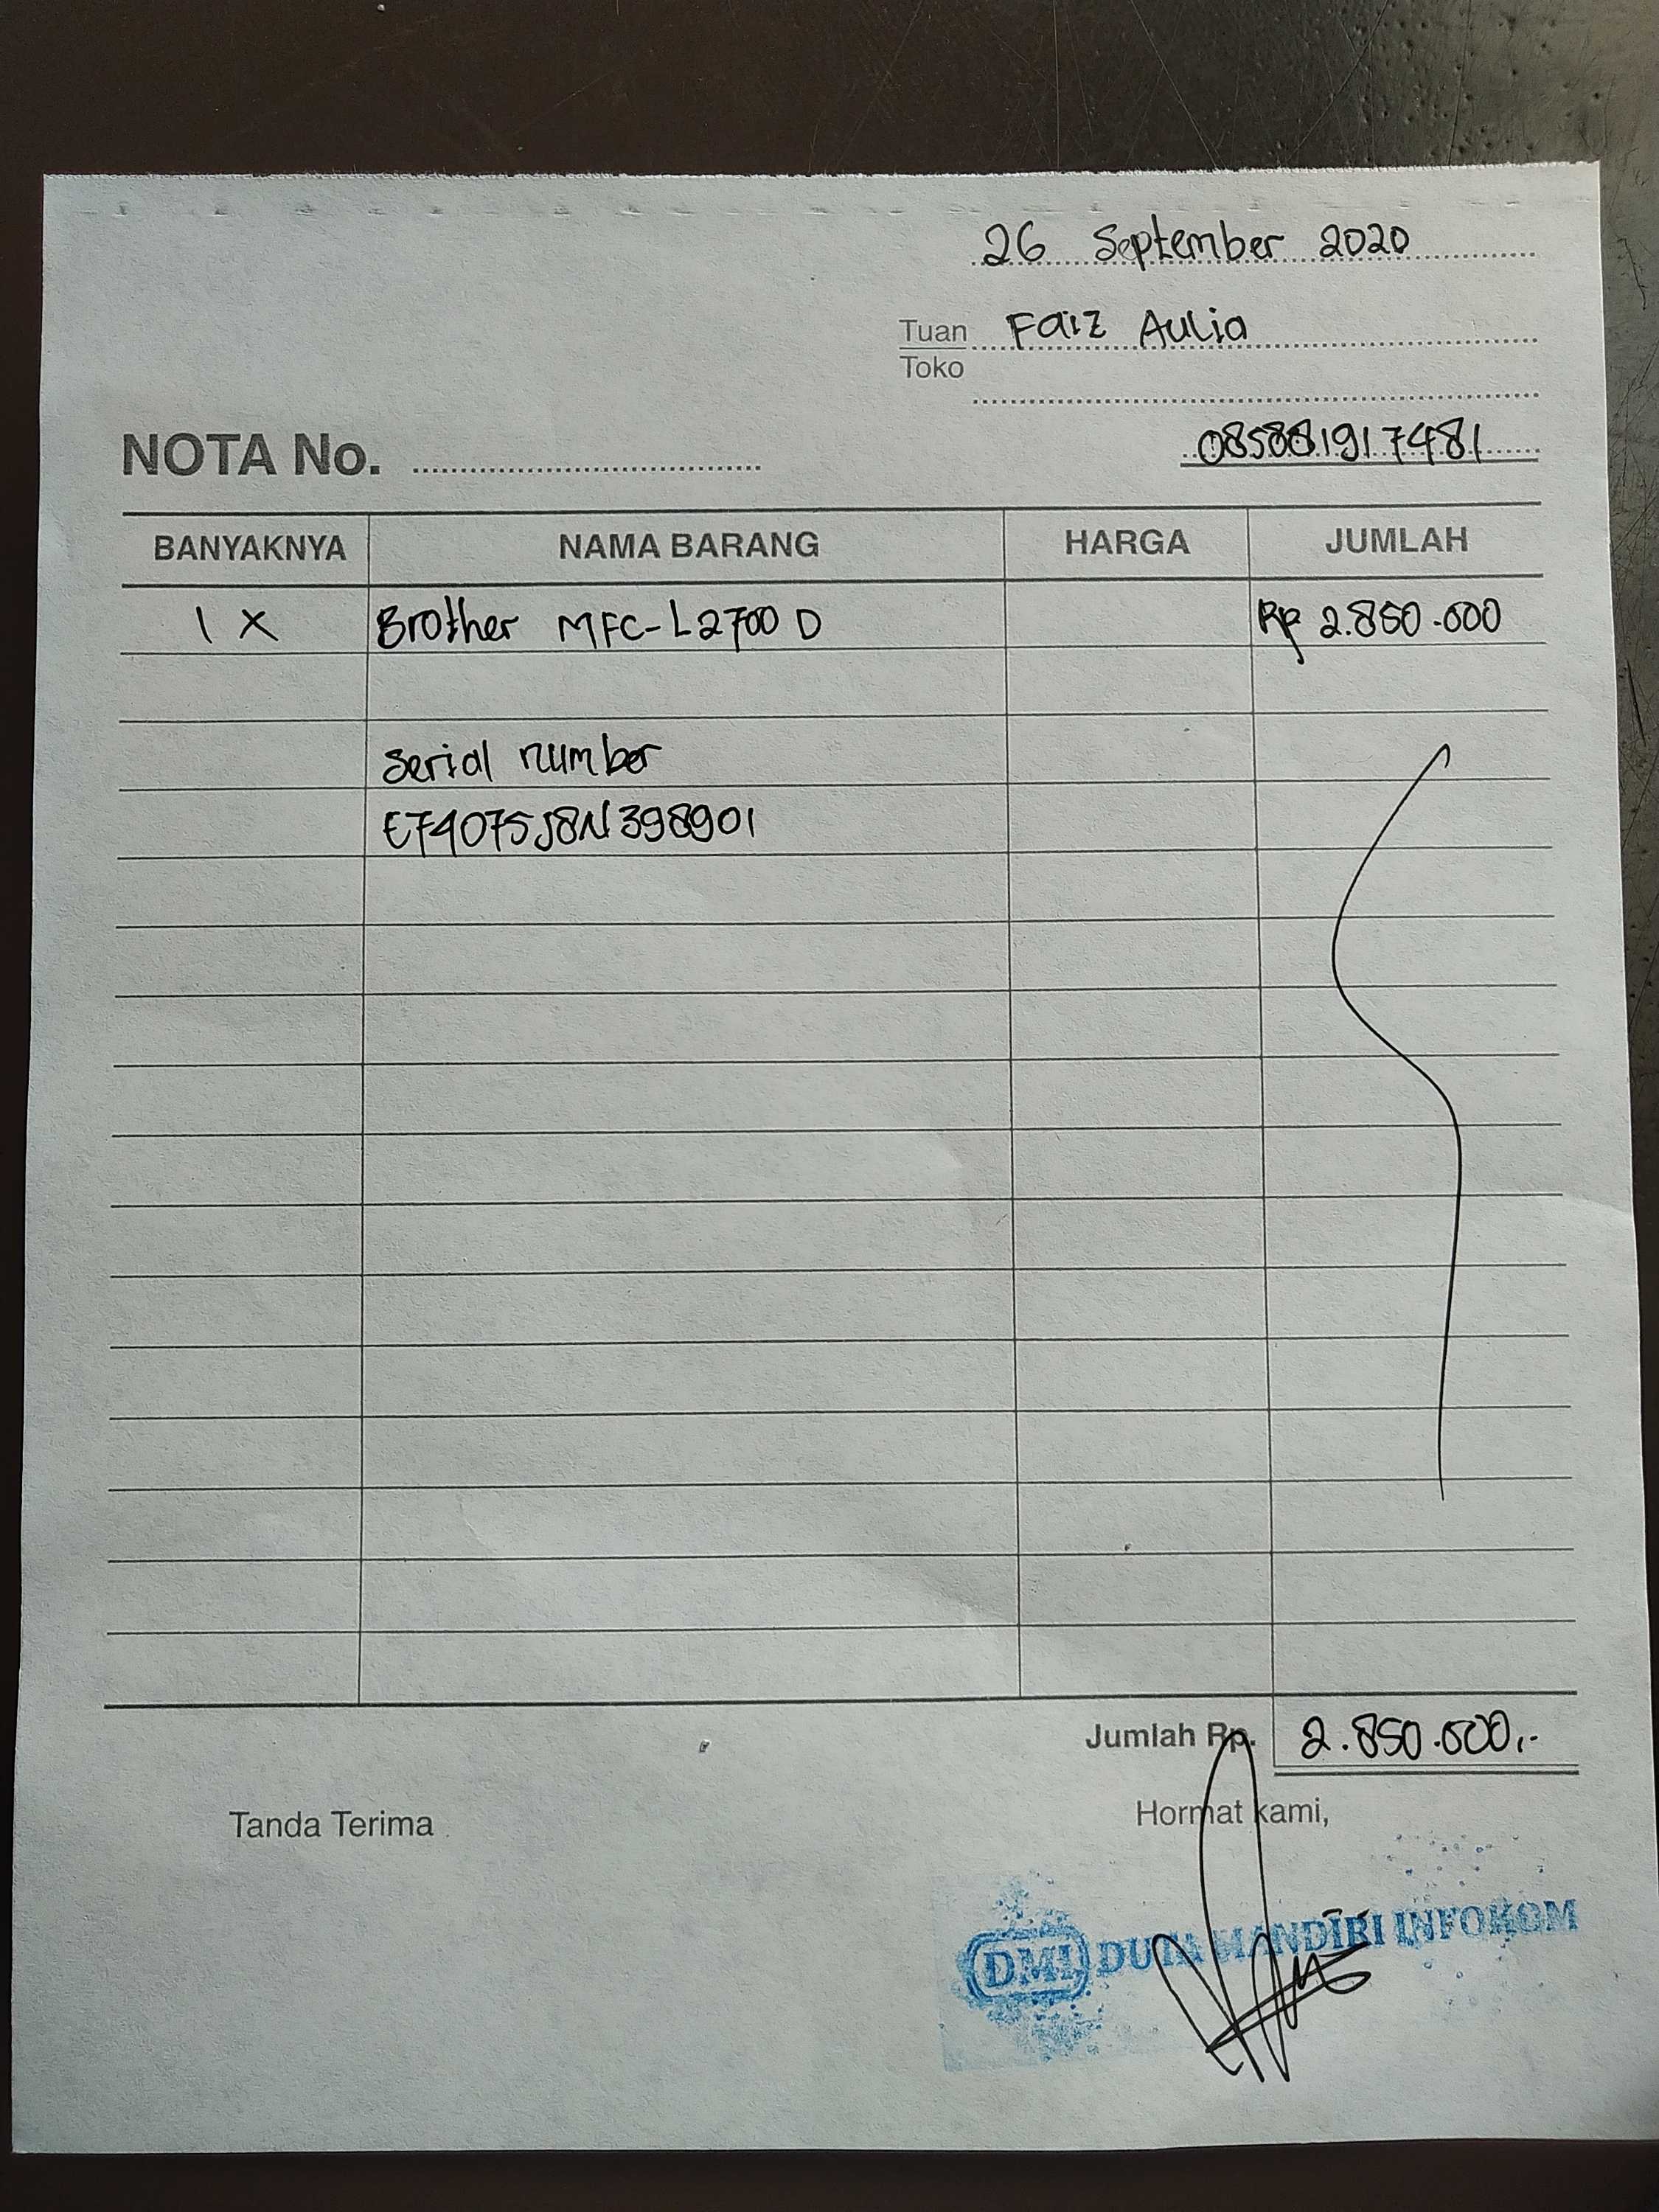 26 September 2020
Tuan Faiz Aulia
Toko
NOTA No. 085881917481
BANYAKNYA NAMA BARANG HARGA JUMLAH
1 X Brother MFC-L2700 D Rp 2.850.000
Serial number
E74075J8N398901
Jumlah Rp. 2.850.000,-
Tanda Terima Hormat kami,
DMI DUTA MANDIRI INFOKOM